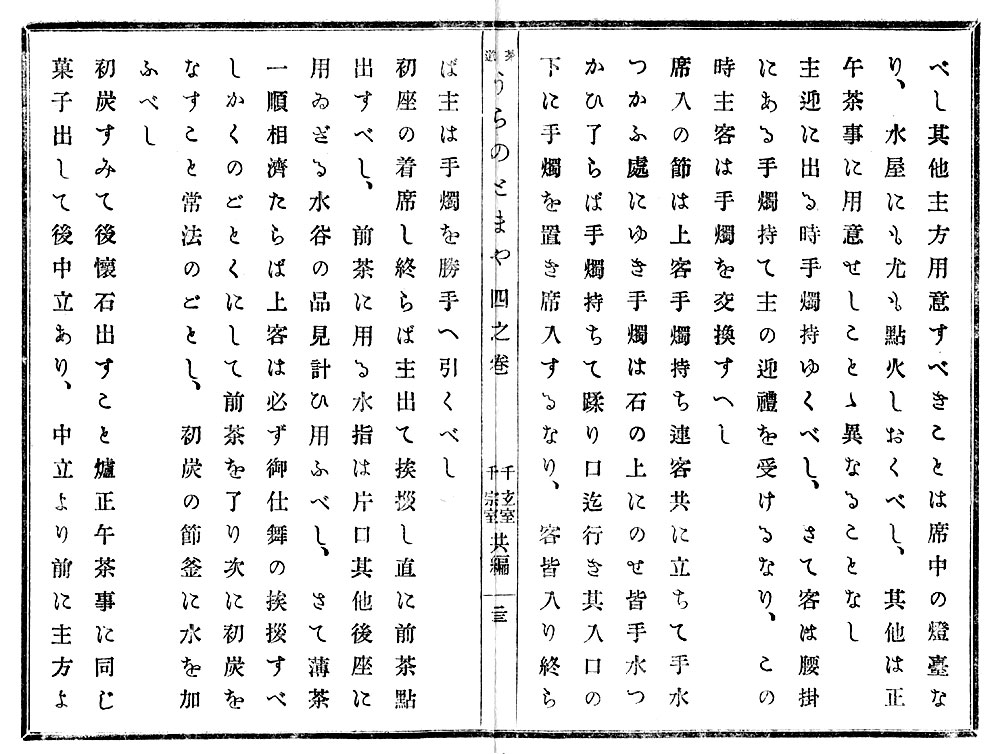 べし其他主方用意すべきことは席中の燈臺な
り、水屋にも尤も點火しおくべし、其他は正
午茶事に用意せしことゝ異なることなし
主迎に出る時手燭持ゆくべし、さて客は腰掛
にある手燭持て主の迎禮を受けるなり、この
時主客は手燭を交換すへし
席入の節は上客手燭持ち連客共に立ちて手水
つかふ處にゆき手燭は石の上にのせ皆手水つ
かひ了らば手燭持ちて蹂り口迄行き其入口の
下に手燭を置き席入するなり、客皆入り終ら
茶道 うらのとまや 四之卷 千玄室 千宗室 共編 三
ば主は手燭を勝手へ引くべし
初座の着席し終らば主出て挨拶し直に前茶點
出すべし、前茶に用る水指は片口其他後座に
用ゐざる水谷の品見計ひ用ふべし、さて薄茶
一順相濟たらば上客は必ず御仕舞の挨拶すべ
しかくのごとくにして前茶を了り次に初炭を
なすこと常法のごとし、初炭の節釜に水を加
ふべし
初炭すみて後懷石出すこと爐正午茶事に同じ
菓子出して後中立あり、中立より前に主方よ